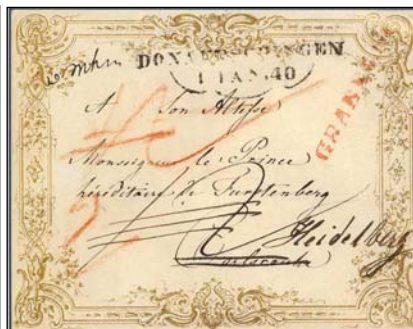 DONAUESCHINGEN
1 JAN. 40
A Son Altesse
Monseigneur le Prince
héréditaire de Furstenberg
Heidelberg
Carlsrouhe